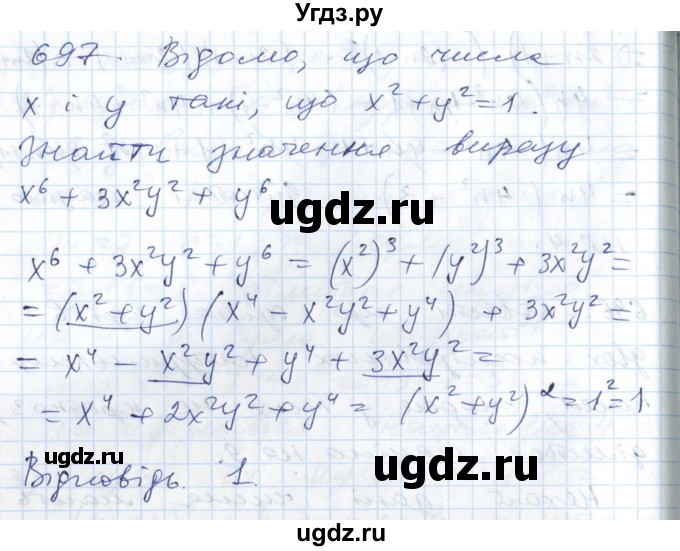 Угдз.ру
697. Відомо, що числа
x і y такі, що x²+y²=1.
Знайти значення виразу
x⁶ + 3x²y² + y⁶.
ugdz.ru
x⁶ + 3x²y² + y⁶ = (x²)³ + (y²)³ + 3x²y² =
= (x² + y²) (x⁴ - x²y² + y⁴) + 3x²y² =
= x⁴ - x²y² + y⁴ + 3x²y² =
ugdz.ru
= x⁴ + 2x²y² + y⁴ = (x² + y²)² = 1² = 1
ugdz.ru ugdz.ru
Відповідь. 1.
ugdz.ru